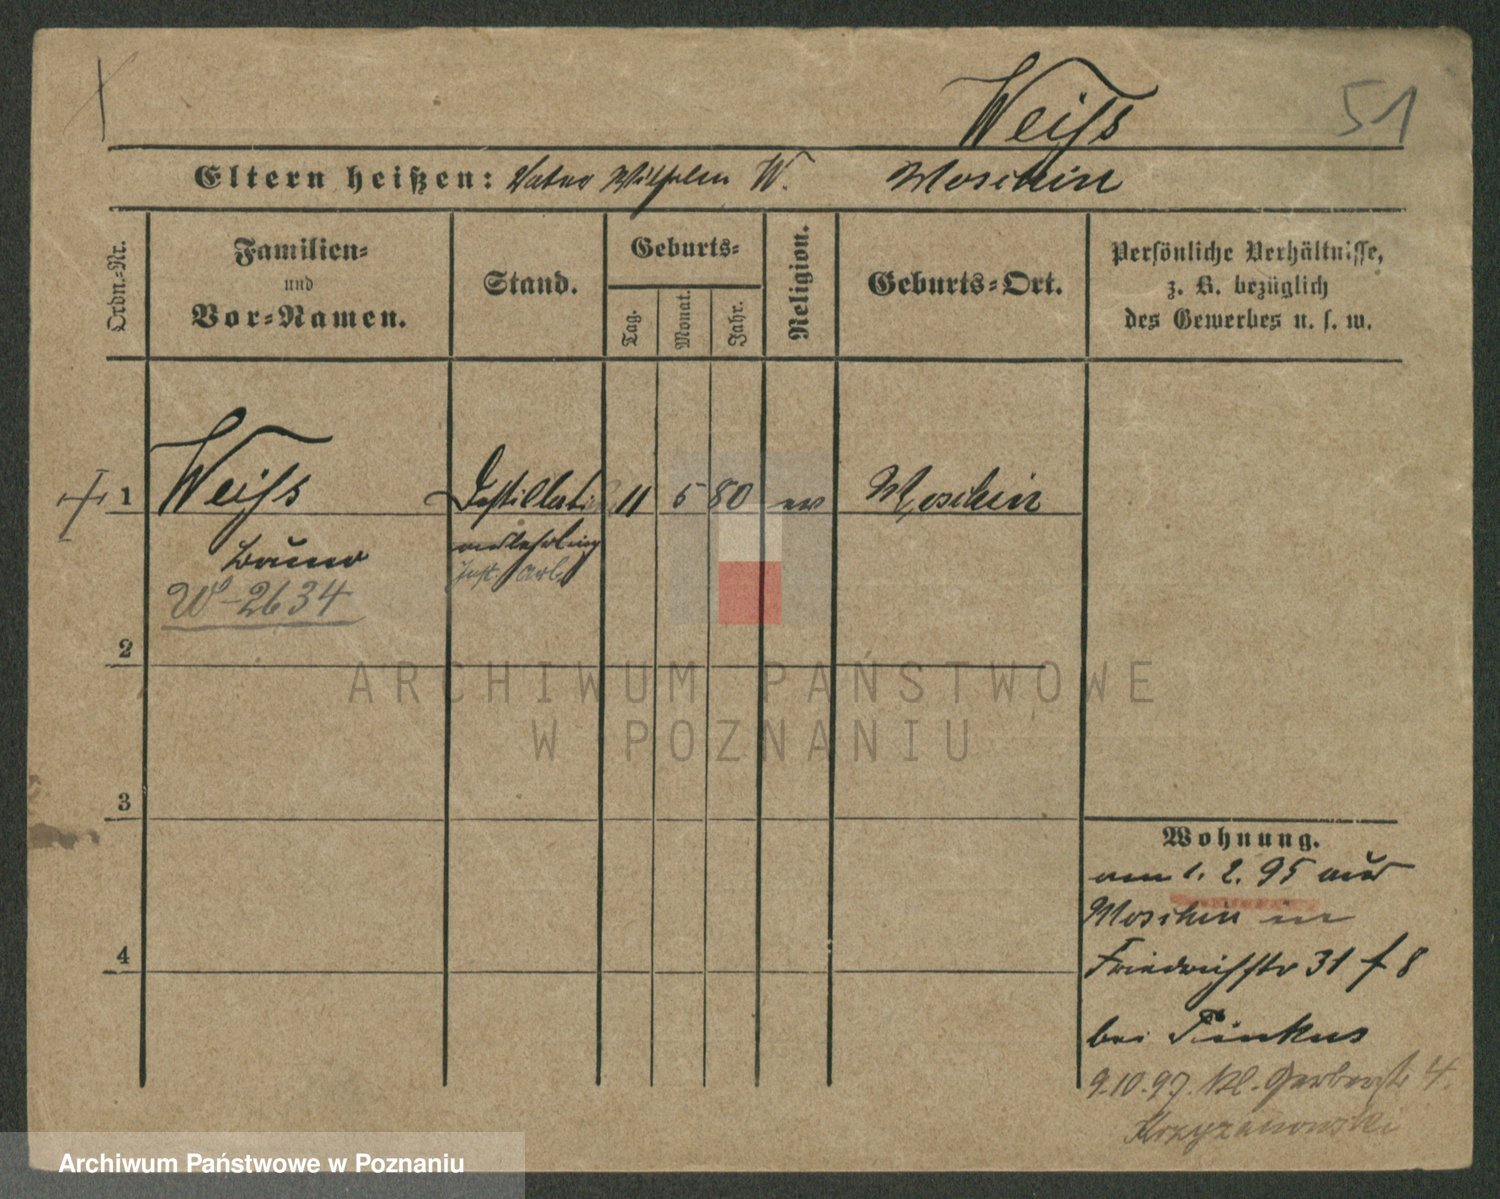 Weiss
51
Eltern heißen: Vater Wilhelm W. Moschin
Ordn.-Nr.
Familien-
und
Vor-Namen.
Stand.
Geburts-
Tag.
Monat.
Jahr.
Religion.
Geburts-Ort.
Persönliche Verhältnisse,
z. B. bezüglich
des Gewerbes u. s. w.
1 Weiss Destillati 11 5 80 ev Moschin
Bruno
W-2634
2
3
4
ARCHIWUM PAŃSTWOWE
W POZNANIU
Wohnung.
am 1. 2. 95 aus
Moschin in
Friedrichstr 31 f 8
bei Pinkus
9.10.97. Kl. Gerberstr. 4.
Krzyzanowski
Archiwum Państwowe w Poznaniu